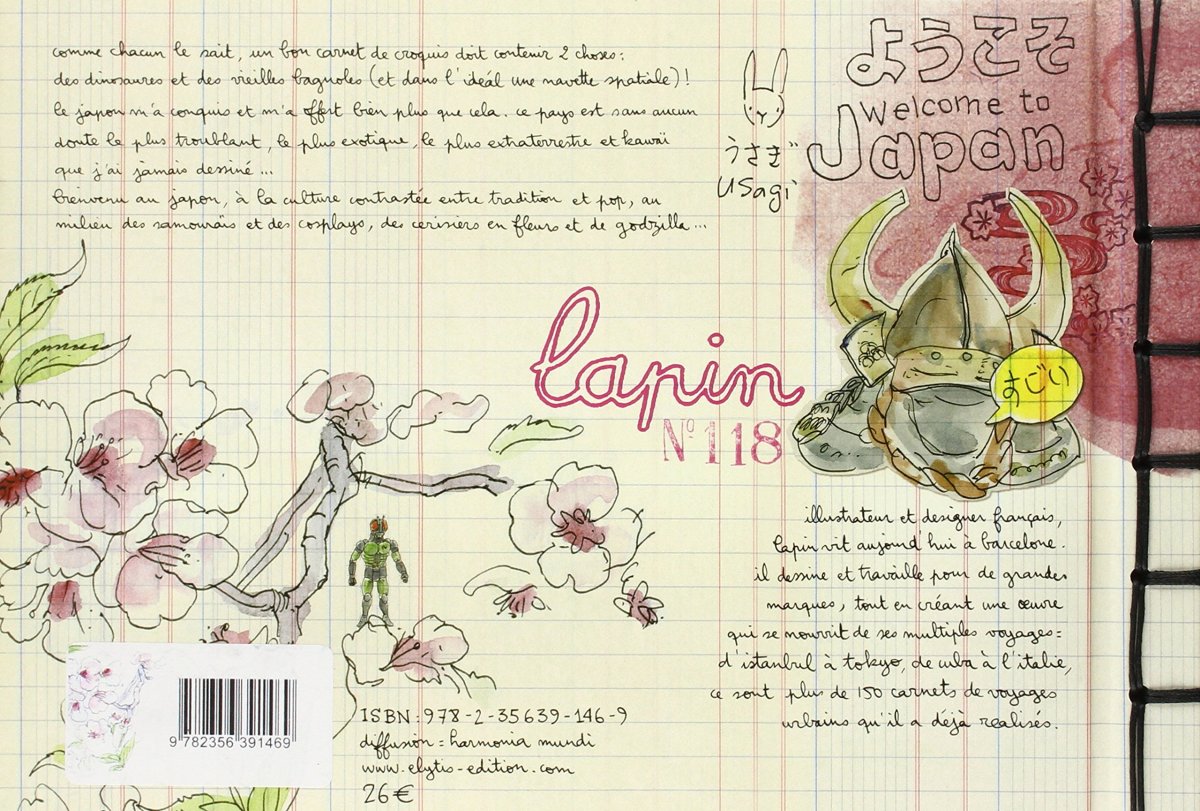 comme chacun le sait, un bon carnet de croquis doit contenir 2 choses:
des dinosaures et des vieilles bagnoles (et dans l'idéal une navette spatiale)!
le japon m'a conquis et m'a offert bien plus que cela. ce pays est sans aucun
doute le plus troublant, le plus exotique, le plus extraterrestre et kawaï
que j'ai jamais dessiné...
bienvenu au japon, à la culture contrastée entre tradition et pop, au
milieu des samouraïs et des cosplays, des cerisiers en fleurs et de godzilla...
うさぎ
usagi
ようこそ
Welcome to
Japan
すごい
lapin
N°118
illustrateur et designer français,
lapin vit aujourd'hui à barcelone.
il dessine et travaille pour de grandes
marques, tout en créant une œuvre
qui se nourrit de ses multiples voyages:
d'istanbul à tokyo, de cuba à l'italie,
ce sont plus de 150 carnets de voyages
urbains qu'il a déjà réalisés.
9 782356 391469
ISBN: 978-2-35639-146-9
diffusion = harmonia mundi
www.elytis-edition.com
26€